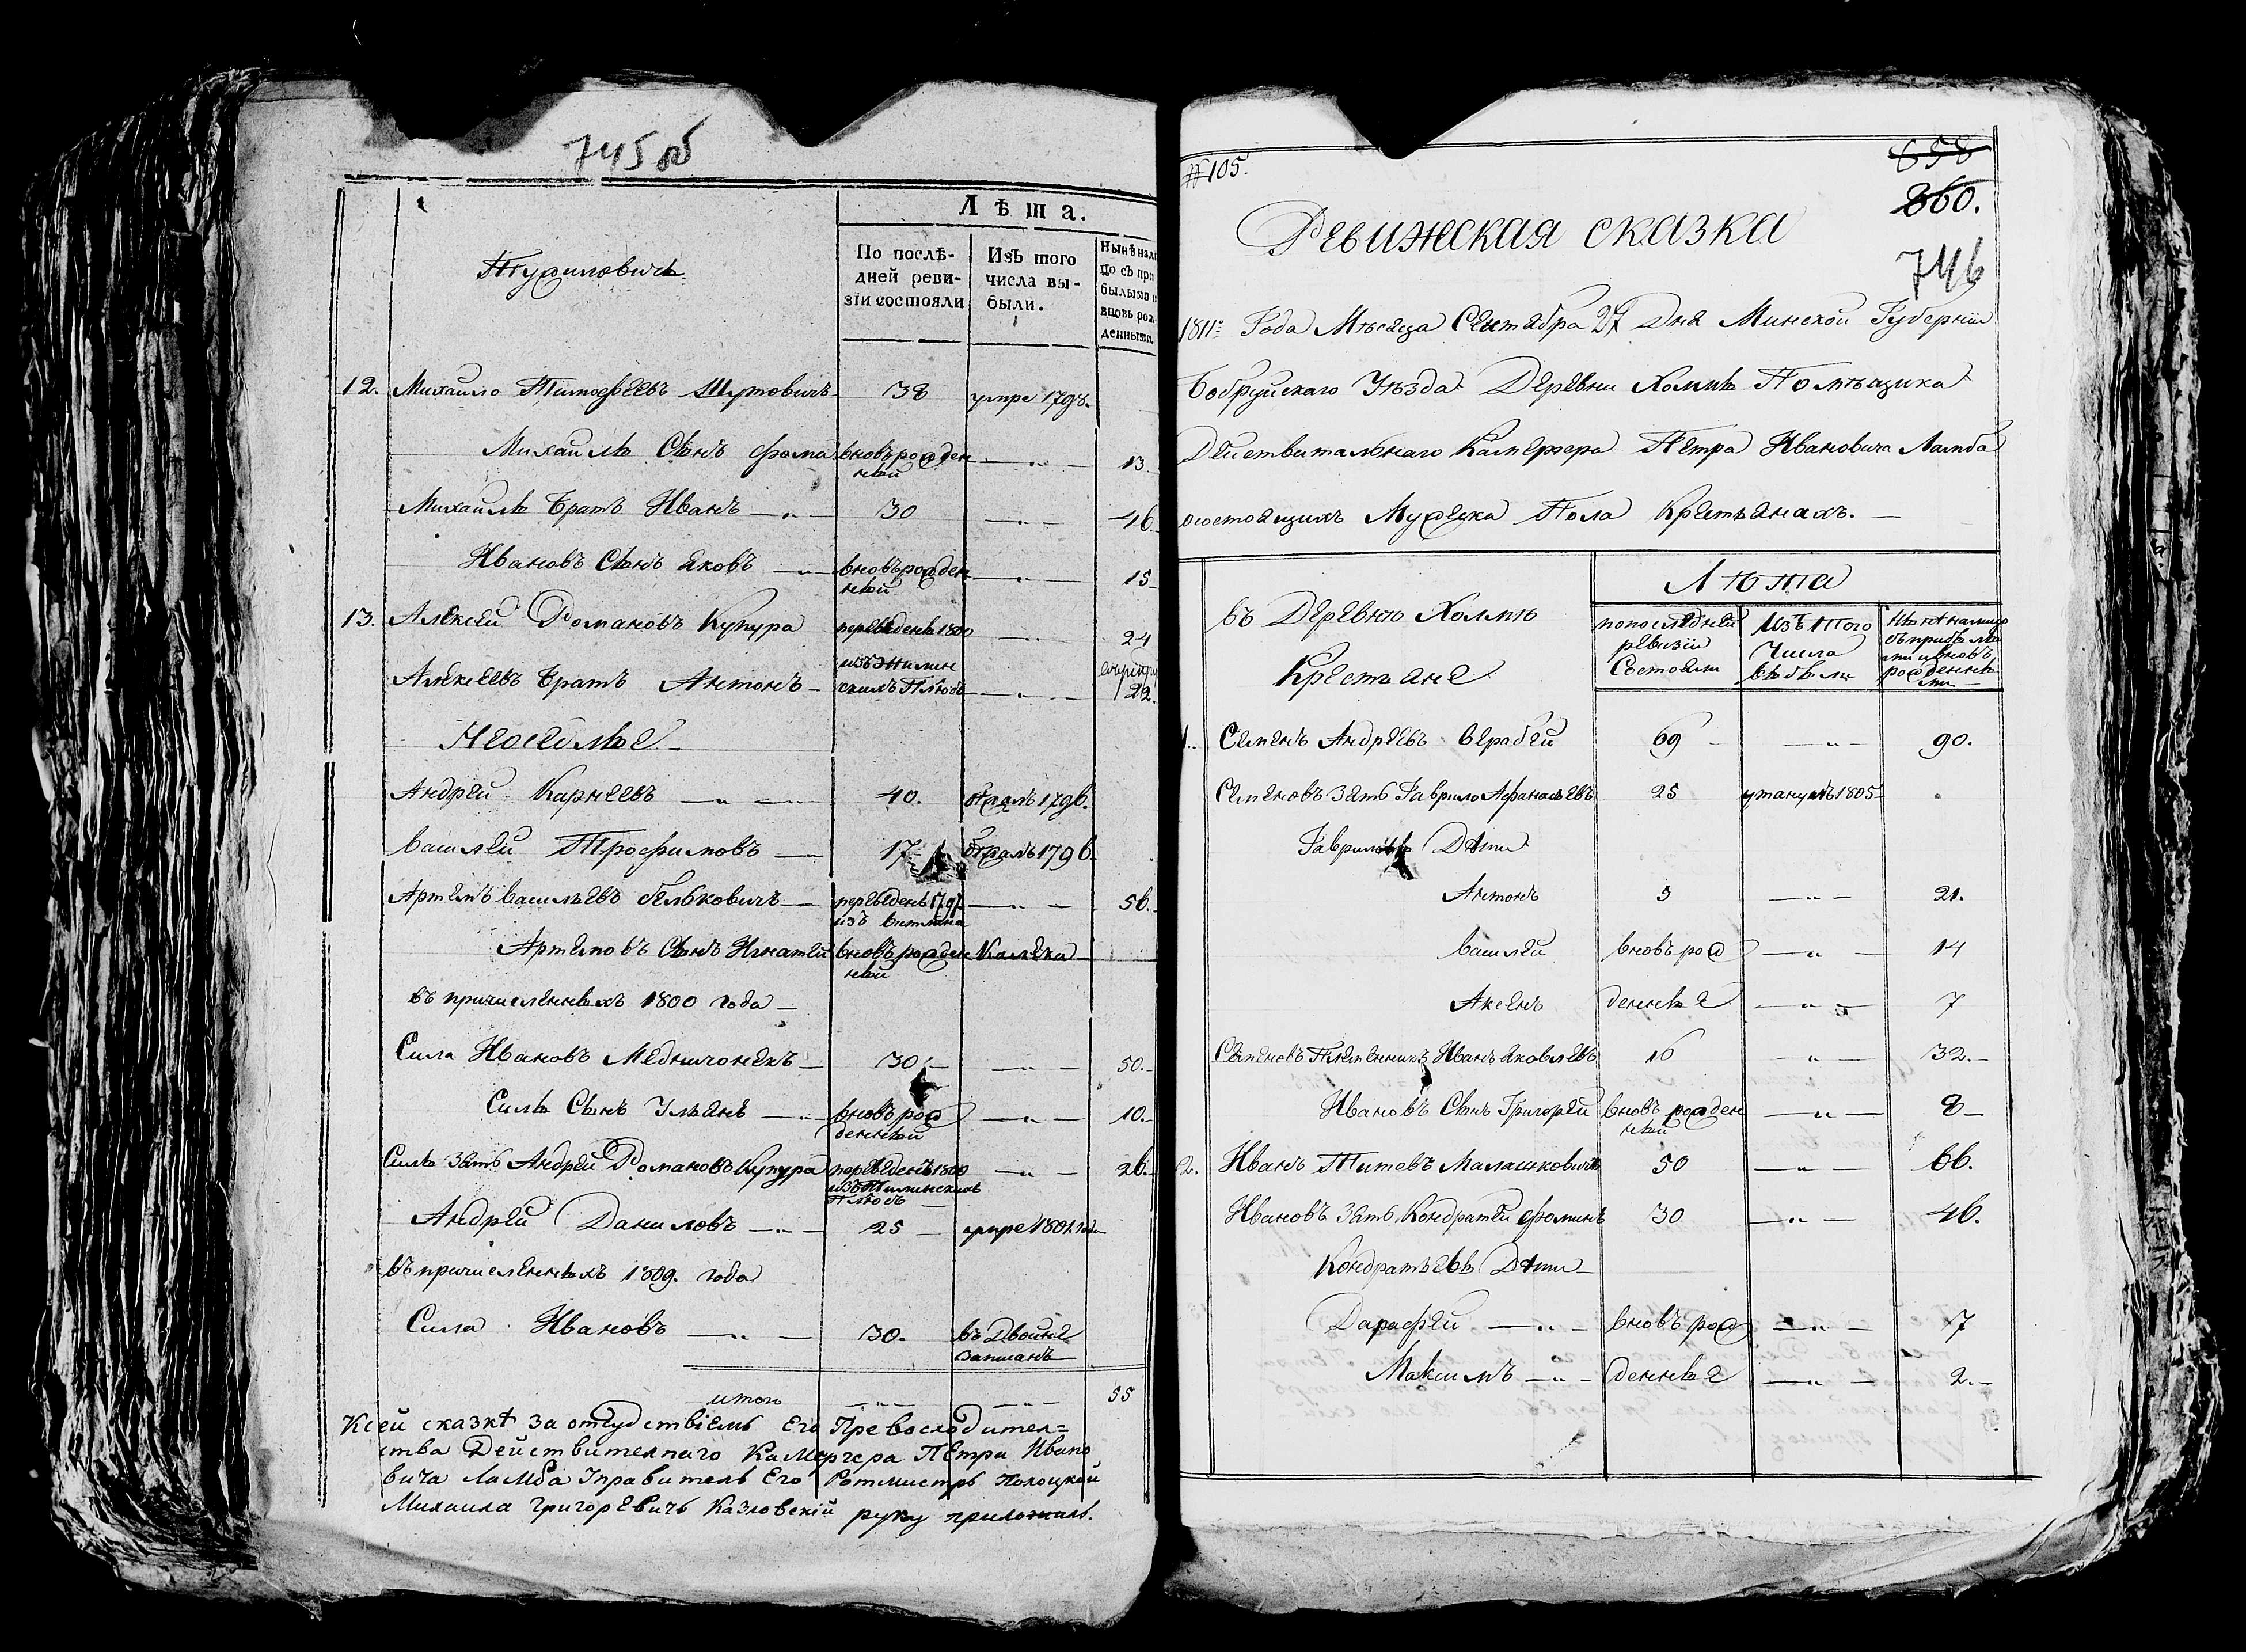 745 об
Лѣта.
По послѣ-
дней реви-
зіи состояли
Изъ того
числа вы-
были.
Нынѣ нали
цо съ при
былыми и
вновь рож
денными.
12. Михайло Тимофеевъ Шутовичъ 38 умре 1798.
Михайлы Сынъ Фома вновьрожден —„— 13
ный
Михайлы братъ Иванъ —„— 30 —„— 46.
Ивановъ Сынъ Яковъ —„— вновьрожден —„— 15
ный
13. Алексей Романовъ Купура переведенъ 1800 —„— 24
Алексеевъ братъ Антонъ — —„— 22.
Андрей Карнеевъ —„— 40. бежалъ 1796.
Василей Трофимовъ —„— 17 бежалъ 1796.
Артемъ Васильевъ — переведенъ —„— 56.
изъ
Артемовъ Сынъ Игнатей вновьрожден Калека
ный
въ причисленныхъ 1800 года —
Сила Ивановъ — 30 — —„— 50.
Силы Сынъ Ульянъ —„— вновьрож —„— 10.
денный
Силы зять Андрей Романовъ Купура переведенъ 1800 —„— 26.
Андрей Даниловъ —„— 25 — умре 1801
въ причисленныхъ 1809. года
Сила Ивановъ —„— 30. въ Двойне
записанъ
итого —„— —„— 55
К сей сказкѣ за отсудствіемъ Его Превосходител=
ства Действителнаго Камергера Петра Ивано
вича Ламба Управитель Его Ротмистръ Полоцкой
Михаила Григорьевичъ Казловскій руку приложалъ.
№ 105.
658
860.
746
Ревижская сказка
1811го Года Месяца Сентября 27 Дня Минской Губернии
Бобруйскаго Уезда Деревни Холмы Помещика
Действительнаго Камергера Петра Ивановича Ламба
осостоящихъ Мужеска Пола Крестьянахъ. —
въ Деревню Холмы
Крестьяне
Лѣта
попоследней
ревизіи
Состояли
Изъ того
Числа
выбыли
Нынѣ налицо
съ прибылы
ми и вновь
рожденны
ми
1. Семенъ Андреевъ Верабей 69 —„— 90.
Семеновъ зять Гаврило Афанасьевъ 25 утанулъ 1805
Гавриловы Дѣти
Антонъ 3 —„— 21.
Василей вновь рож —„— 14
Аксенъ денные —„— 7
Семеновъ Племенникъ Иванъ Яковлевъ 16 —„— 32.
Ивановъ Сынъ Григорей вновь рожден —„— 8
ный
2. Иванъ Титовъ Малашковичъ 50 —„— 66.
Ивановъ зять Кондратей Фоминъ 30 —„— 46.
Кондратьевы Дѣти
Дарафей —„— вновь рож —„— 7
Максимъ —„— денные —„— 2.